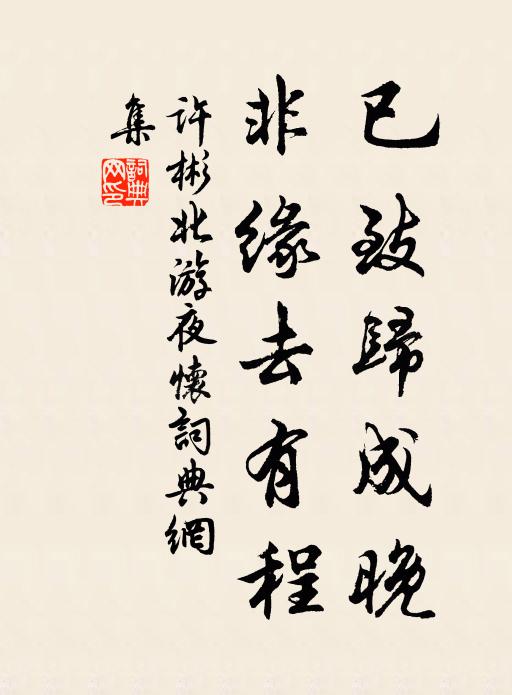 已致歸成晚
非緣去有程
许彬北游夜懷詞典網
集
詞典
网印